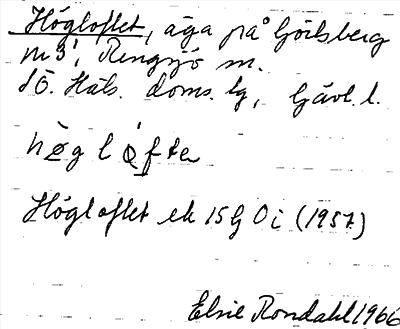 Högloftet, äga på Görlsberg
m3, Rengsjö sn.
SÖ. Häls. doms. lg, Gävl. l.
hөglөftɐ
Högloftet ek 15G0i (1957)
Elsie Rondahl 1966